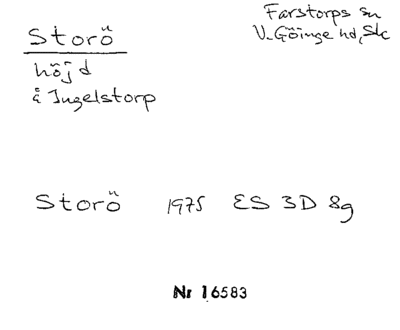 Storö
Farstorps sn
V. Göinge hd, Sk
höjd
å Ingelstorp
Storö 1975 ES 3D 8g
Nr 16583